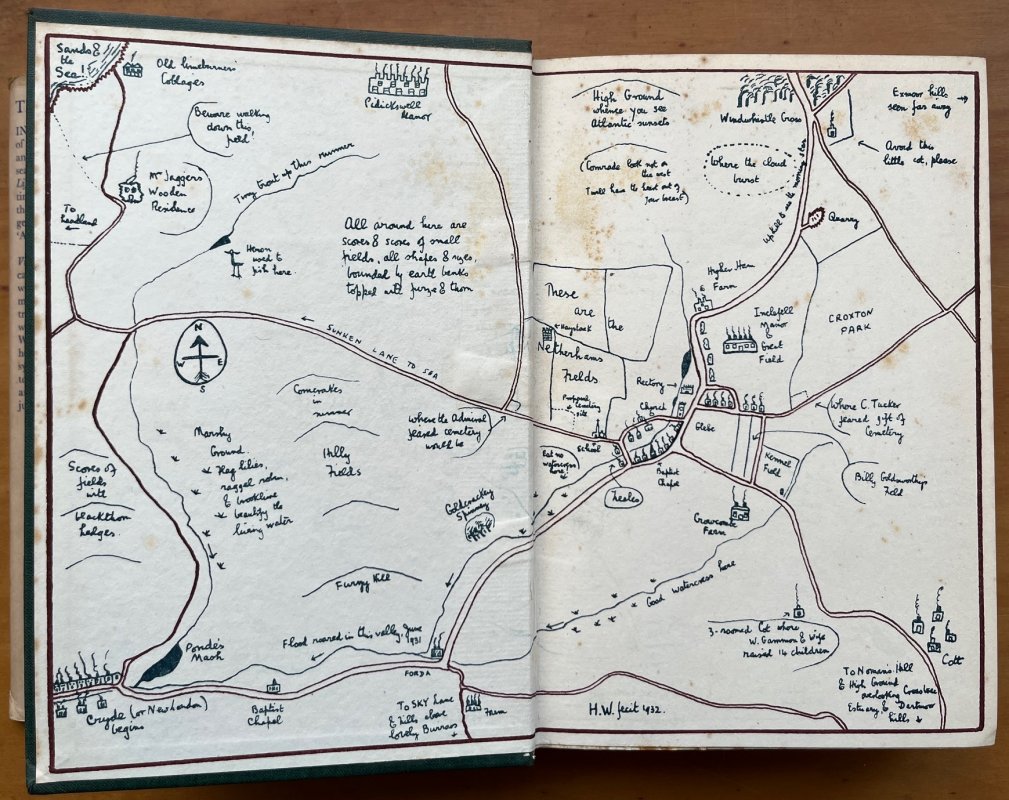 Sands &
the
Sea!
Old limeburners'
Cottages
Beware walking
down this
field!
Mr Jaggers
Wooden
Residence
To
headland
Cidickswell
Manor
Tiny trout up this runner
Heron
used to
fish here.
All around here are
scores & scores of small
fields, all shapes & sizes,
bounded by earth banks
topped with furze & thorn
N
W
E
S
SUNKEN LANE TO SEA
Corncrakes
in
summer
Where the Admiral
feared cemetery
would be
Marshy
Ground.
Flag lilies,
ragged robin,
& brooklime
beautify the
living water
Hilly
Fields
Scores of
fields
with
blackthorn
hedges
Goldcrackey
Spinney
Furzy Hill
Flood roared in this valley, June
1931
Ponde's
Mash
FORDA
Cryde (or Newhordon)
begins
Baptist
Chapel
To SKY Lane
& hills above
lovely Burrows
Farm
High Ground
whence you see
Atlantic sunsets
Windwhistle Cross
Exmoor hills
seen far away
Avoid this
little cot, please
(Comrade look not on
the west
Twill have the heart out of
your breast)
Where the cloud
burst
Uphill & see the morning star
Quarry
Higher Ham
Farm
These
are
the
Haystack
Netherhams
Fields
Proposed
Cemetery
site
Inclefell
Manor
&
Great
Field
CROXTON
PARK
Rectory
Church
School
Glebe
Where C. Tucker
feared gift of
Cemetery
Eat no
watercress
here!
Baptist
Chapel
Zeales
Kennel
Field
Billy Goldsworthy's
Field
Crowcombe
Farm
Good watercress here
3-roomed Cot where
W. Gammon & Wife
raised 14 children
Cott
To Noman's Hill
& High Ground
overlooking
Estuary & Dartmoor
hills
H.W. fecit 1932.